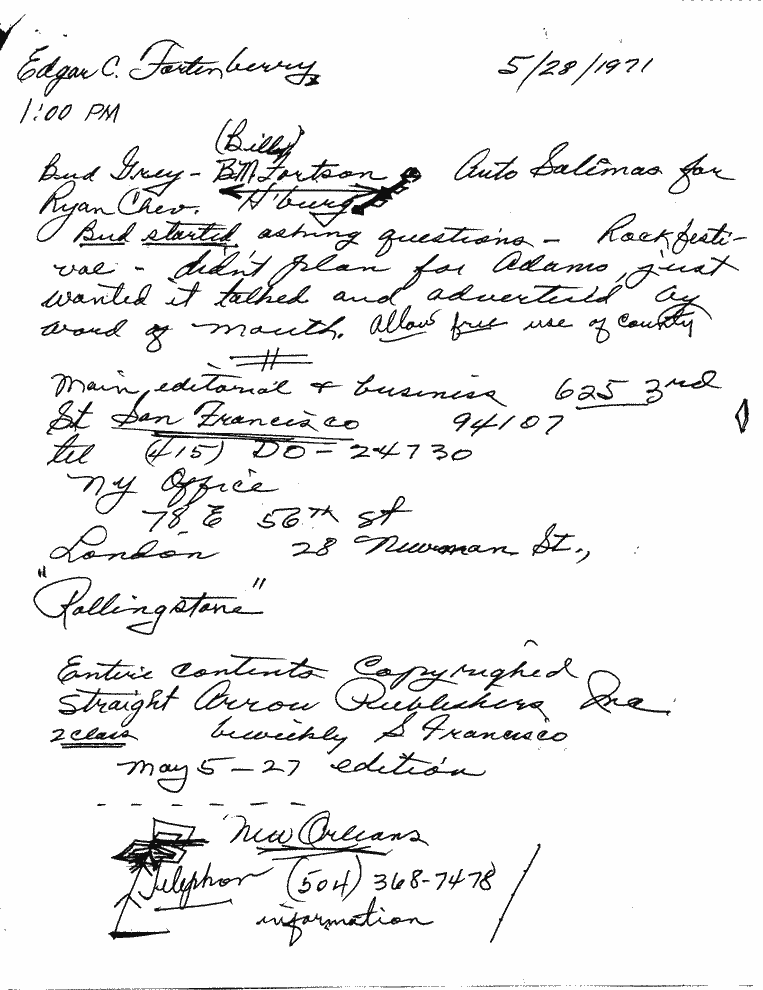 Edgar C. Fortenberry 5/28/1971
1:00 PM
(Billy)
Bud Grey - B.M. Fortson Auto Salesman for
Ryan Chev. H'burg
Bud started asking questions - Rock festi-
val - didn't plan for Adams, just
wanted it talked and advertised by
word of mouth. Allow free use of county
Main, editorial & business 625 3rd
St San Francisco 94107
tel (415) DO-24730
NY Office
78 E 56TH St
London 28 Newman St.,
"Rollingstone"
Entire contents Copyrighed
Straight Arrow Publishers Inc.
2 class biweekly S Francisco
May 5-27 edition
New Orleans
Telephon (504) 368-7478
information